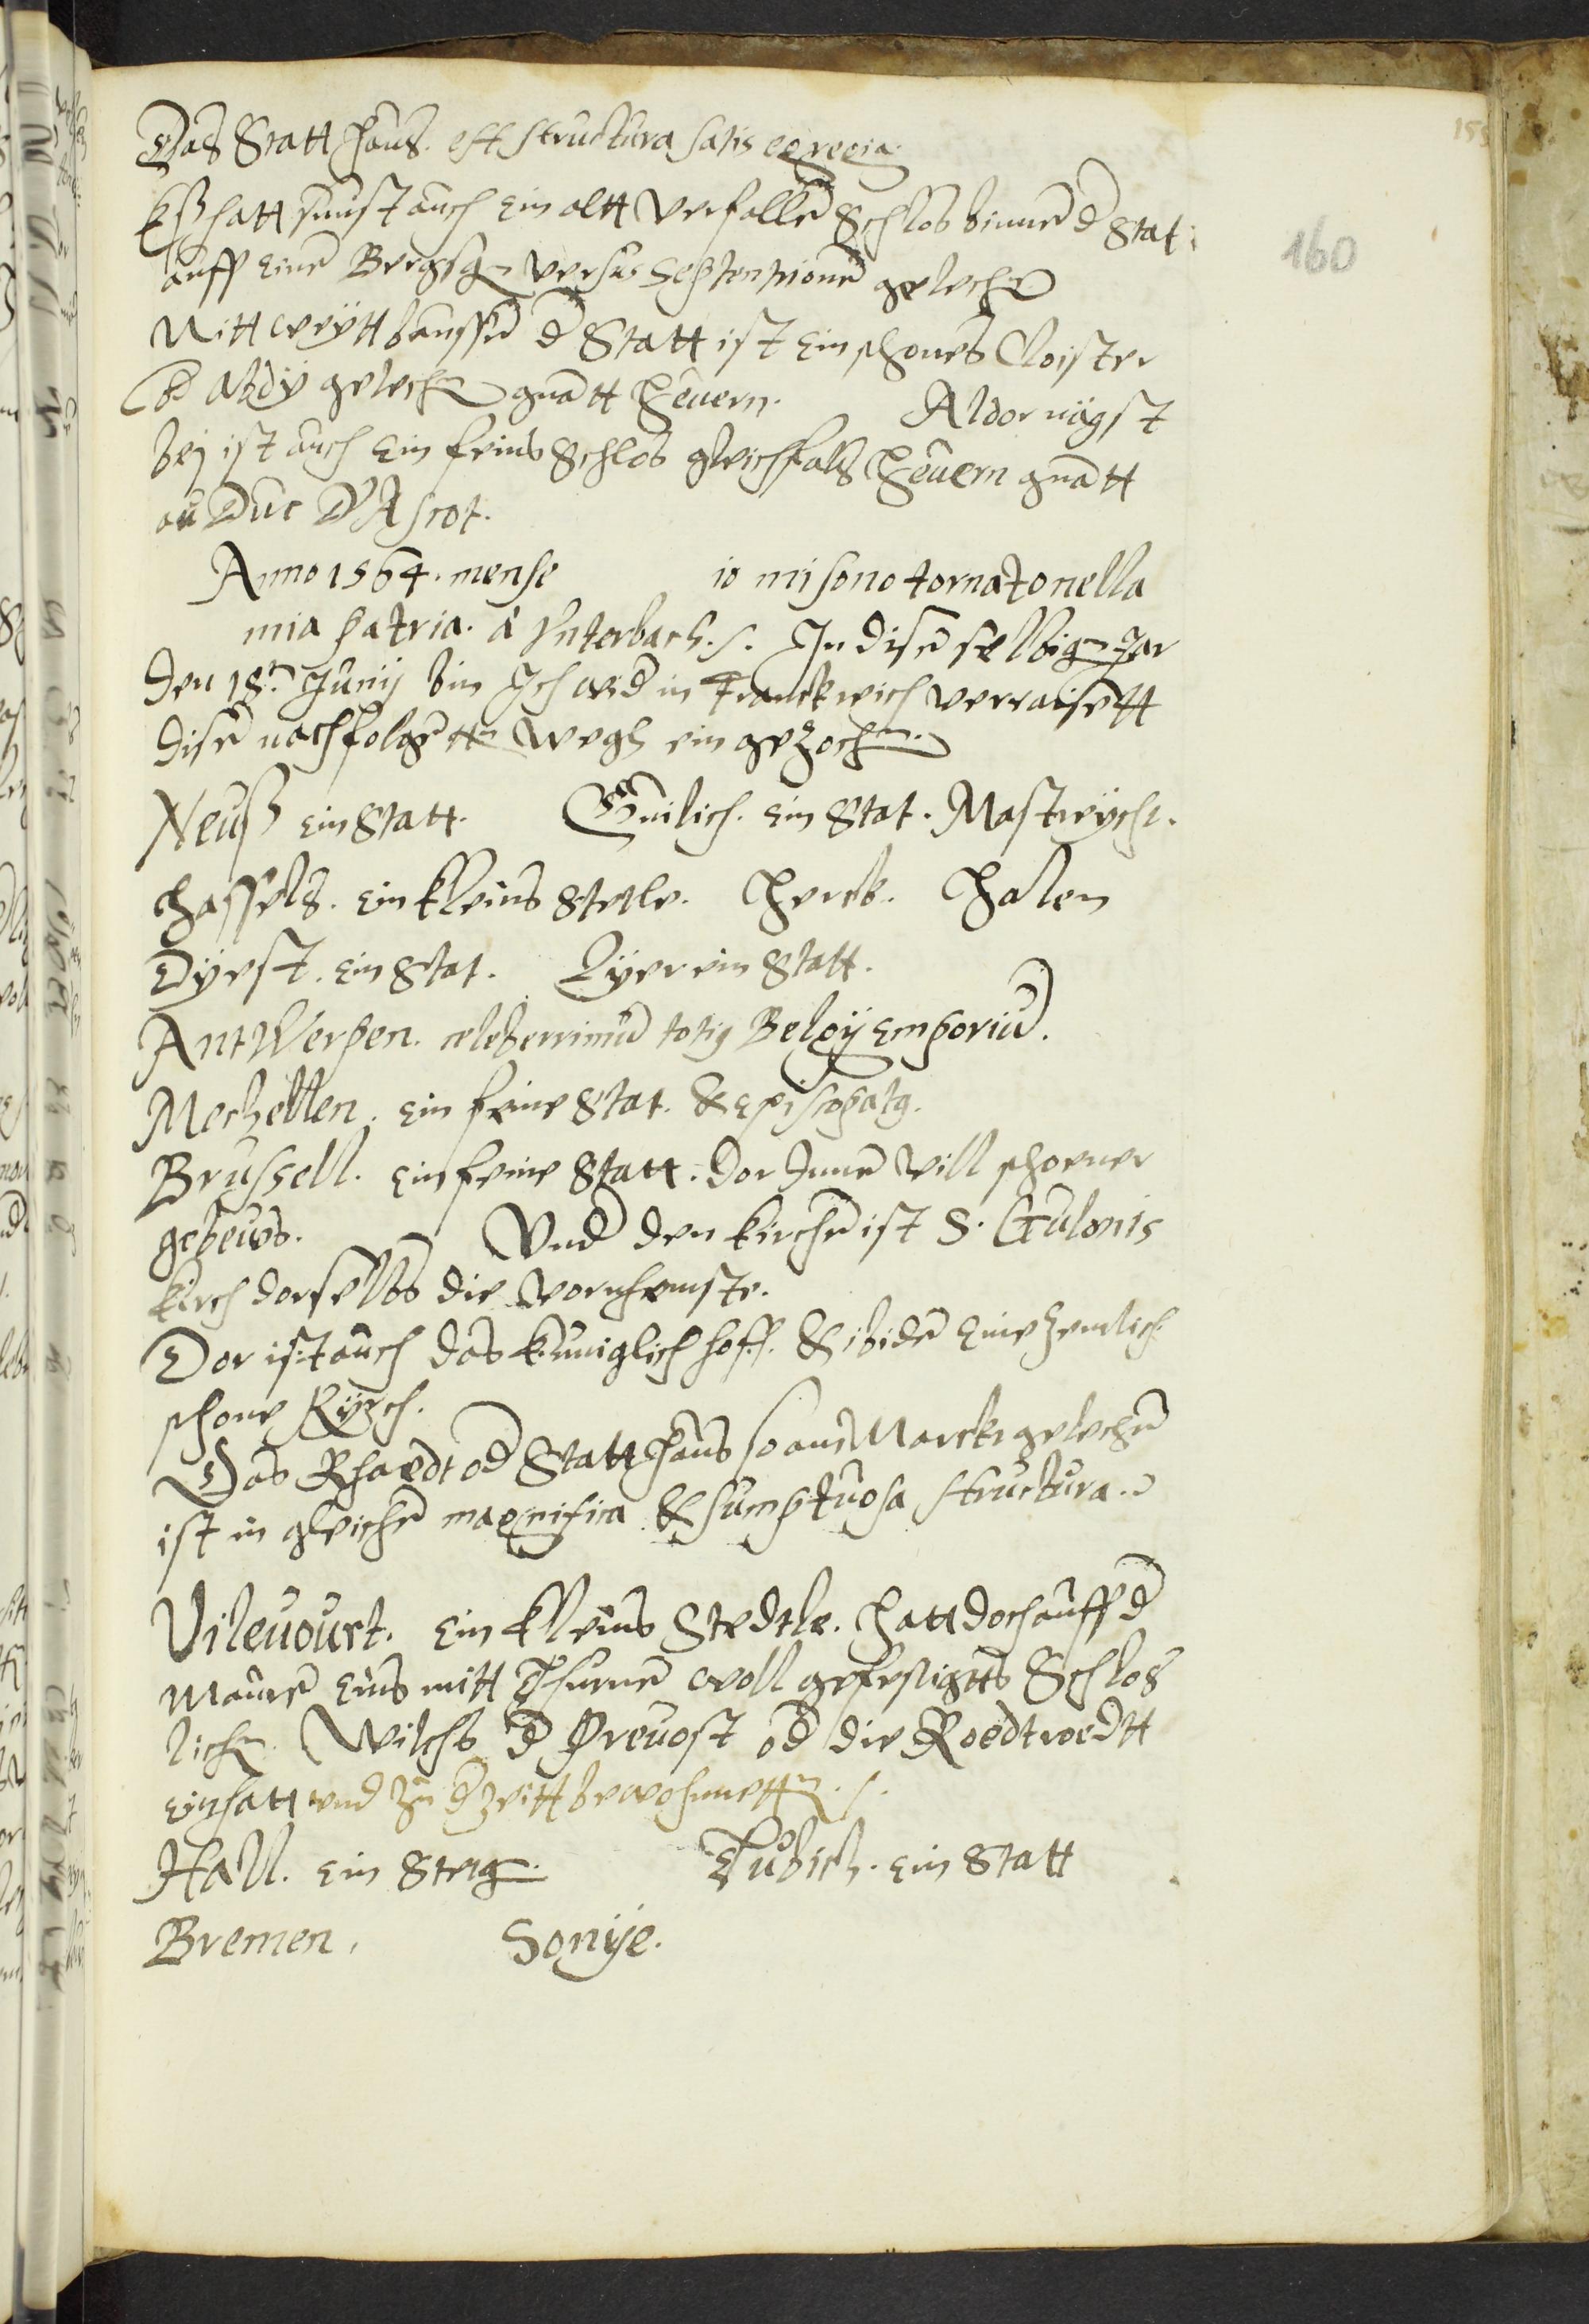 155
160
Das Statt Haus. est structura satis egregia.
Eß hatt sunst auch ein altt verfallē Schlos binnē d Stat.
auff einē Bergsgen versus Septentrionē gelechen
Nitt weytt baussē d Statt ist ein schones Cloister
od Abdy gelechen gnātt Heuern. Aldor nägst
bej ist auch ein feins Schlos gleichfals Heuern gnātt
au Duc D'Ascot.
Anno 1564. mense io mi sono tornato nella
mia patria. à Ynterbach. /. In disē selbigen Jar
den 18ten Junij bin Ich wid in Franckreich verraisett
disē nachfolgētten wegh ein gezochen.
Neuß ein Statt. Guilich. ein Stat. Mastrycht.
Hassels. ein kleins Stetle. Herck. Halen
Dyest. ein Stat. Lyer ein Statt.
AntWerpen. celeberrimū totius Belgij Emporiū.
Mechellen. ein feine Stat. & Episcopatus.
Brussell. ein feine Statt. dor Innē vill schoener
gebeus. Vnd den kirchē ist S. Gulonis
kirch dorselbs die vornhemste.
Dor ist auch das kuniglich hoff. & ibidē eine zemlich
schone Kyrch.
Das Rhaedt od Statt Haus so am Marckt gelechē
ist in gleichē magnifica & sumptuosa structura.
Vileuourt. ein kleins Stedtle. Hatt doch auff d
Maurē eins mitt Thurnē woll gefestigtts Schlos
lichen. Wilchs d Preuost od die Roedtroedtt
einhatt vnd zu d zeitt bewohnnetten. /.
Hall. ein Stetgen. Tubich. ein Statt
Bremen. Sonije.